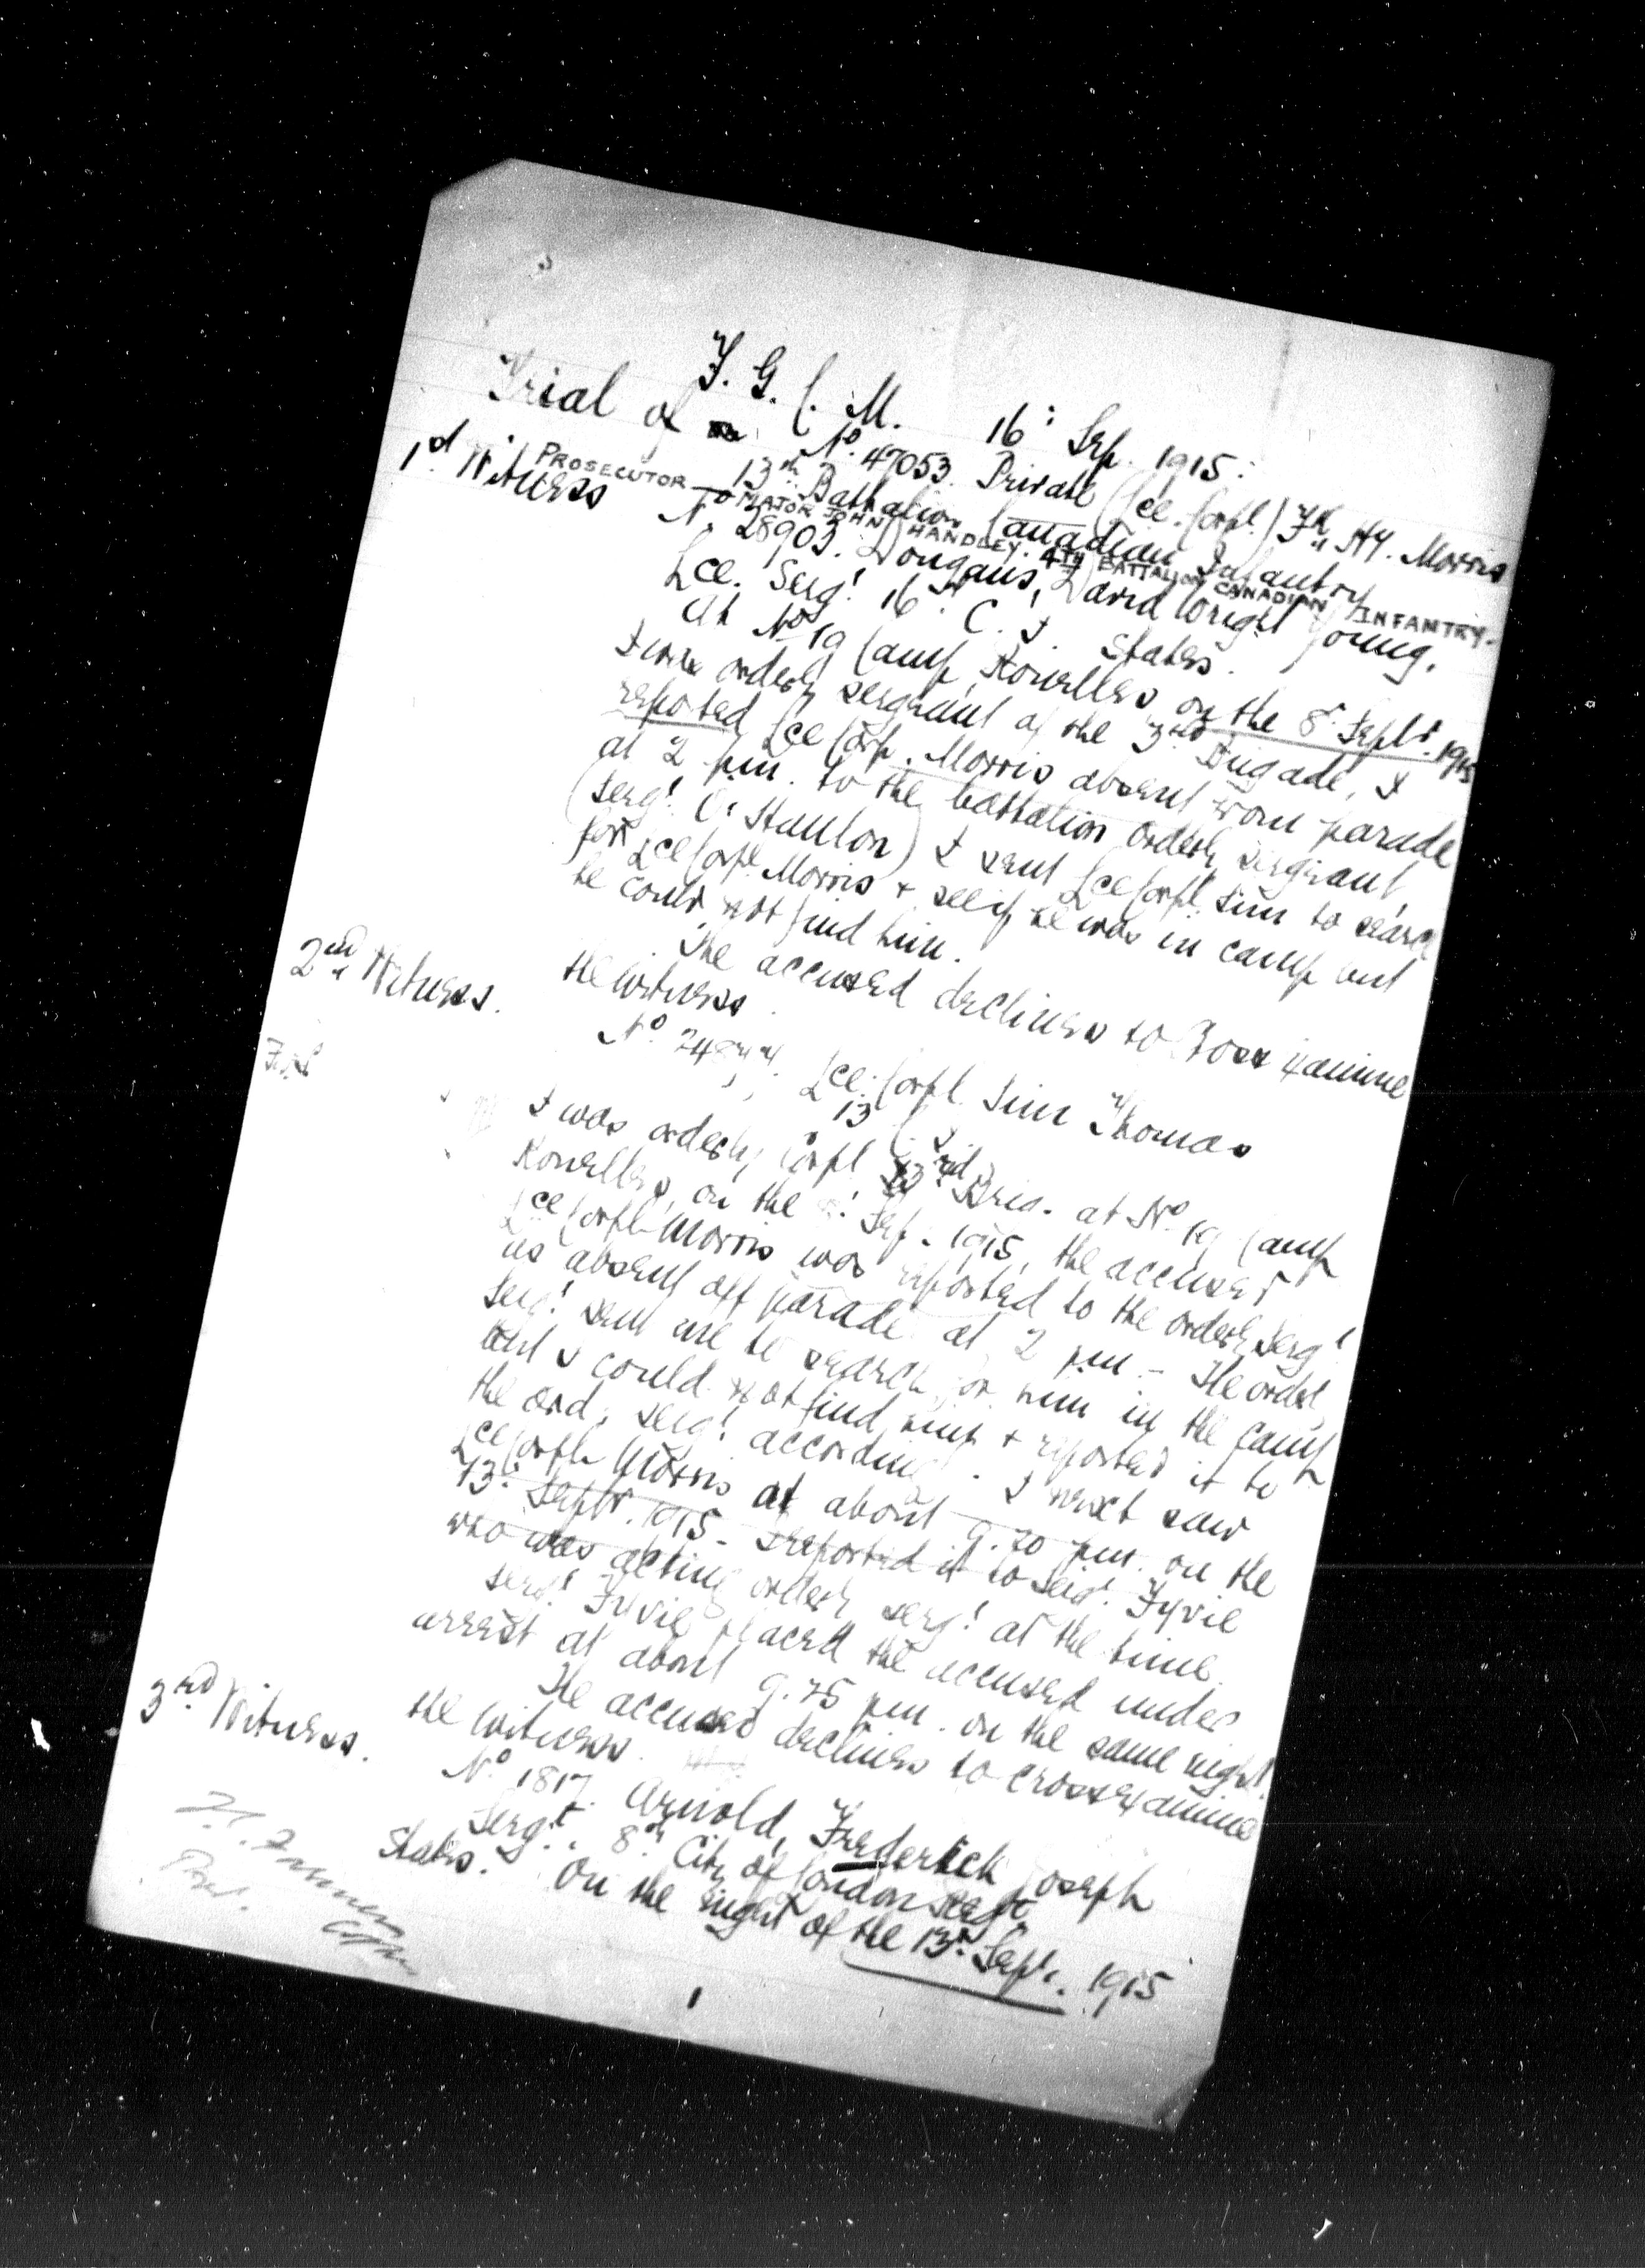 F. G. C. M. 16th Sep. 1915.
Trial of No. 47053. Private (Lce. Corpl.) Fk Hy. Morris
13th Battalion Canadian Infantry
PROSECUTOR — MAJOR JOHN HANDLEY. 4TH BATTALION CANADIAN INFANTRY.
1st Witness No 28903. Dougans, David Wright Young.
Lce. Sergt 16th C. I. States.
At No 19 Camp, Rouelles on the 8th Septr. 1915
I was orderly sergeant of the 3rd Brigade, I
reported Lce Corp. Morris absent from parade
at 2 pm. to the battalion orderly sergeant,
(Sergt O. Stanton) I sent Lce Corpl. Sim to search
for Lce Corpl. Morris + see if he was in camp but
he could not find him.
The accused declines to Cross Examine
the witness.
2nd Witness. No Lce. Corpl. Sim Thomas
13 C. I.
I was orderly Corpl 3rd Brig. at No 19 Camp
Rouelles, on the Sep. 1915, the accused
Lce Corpl. Morris was reported to the orderly Sergt
as absent off parade at 2 pm – The order.
Sergt sent me to search for him in the Camp
but I could not find him + reported it to
the ord. sergt accordingly. I next saw
Lce Corpl. Morris at about 9.20 pm. on the
13th Septr. 1915 – I reported it to Sergt. Fyvie
who was acting orderly sergt at the time.
Sergt Fyvie placed the accused under
arrest at about 9.25 pm. on the same night.
The accused declines to cross examine
the witness.
3rd Witness. No 1817. Arnold, Frederick Joseph
Sergt. 8th City of London Regt
States. On the night of the 13th Sept. 1915
1